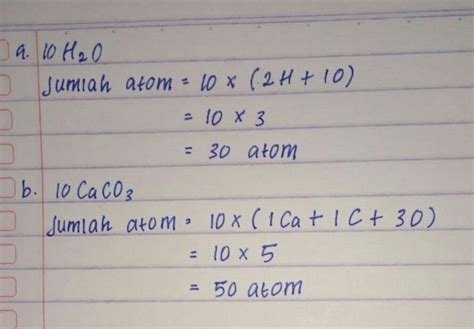 a. 10 H₂O
Jumlah atom = 10 × (2H + 1O)
= 10 × 3
= 30 atom
b. 10 CaCO₃
Jumlah atom = 10 × (1Ca + 1C + 3O)
= 10 × 5
= 50 atom